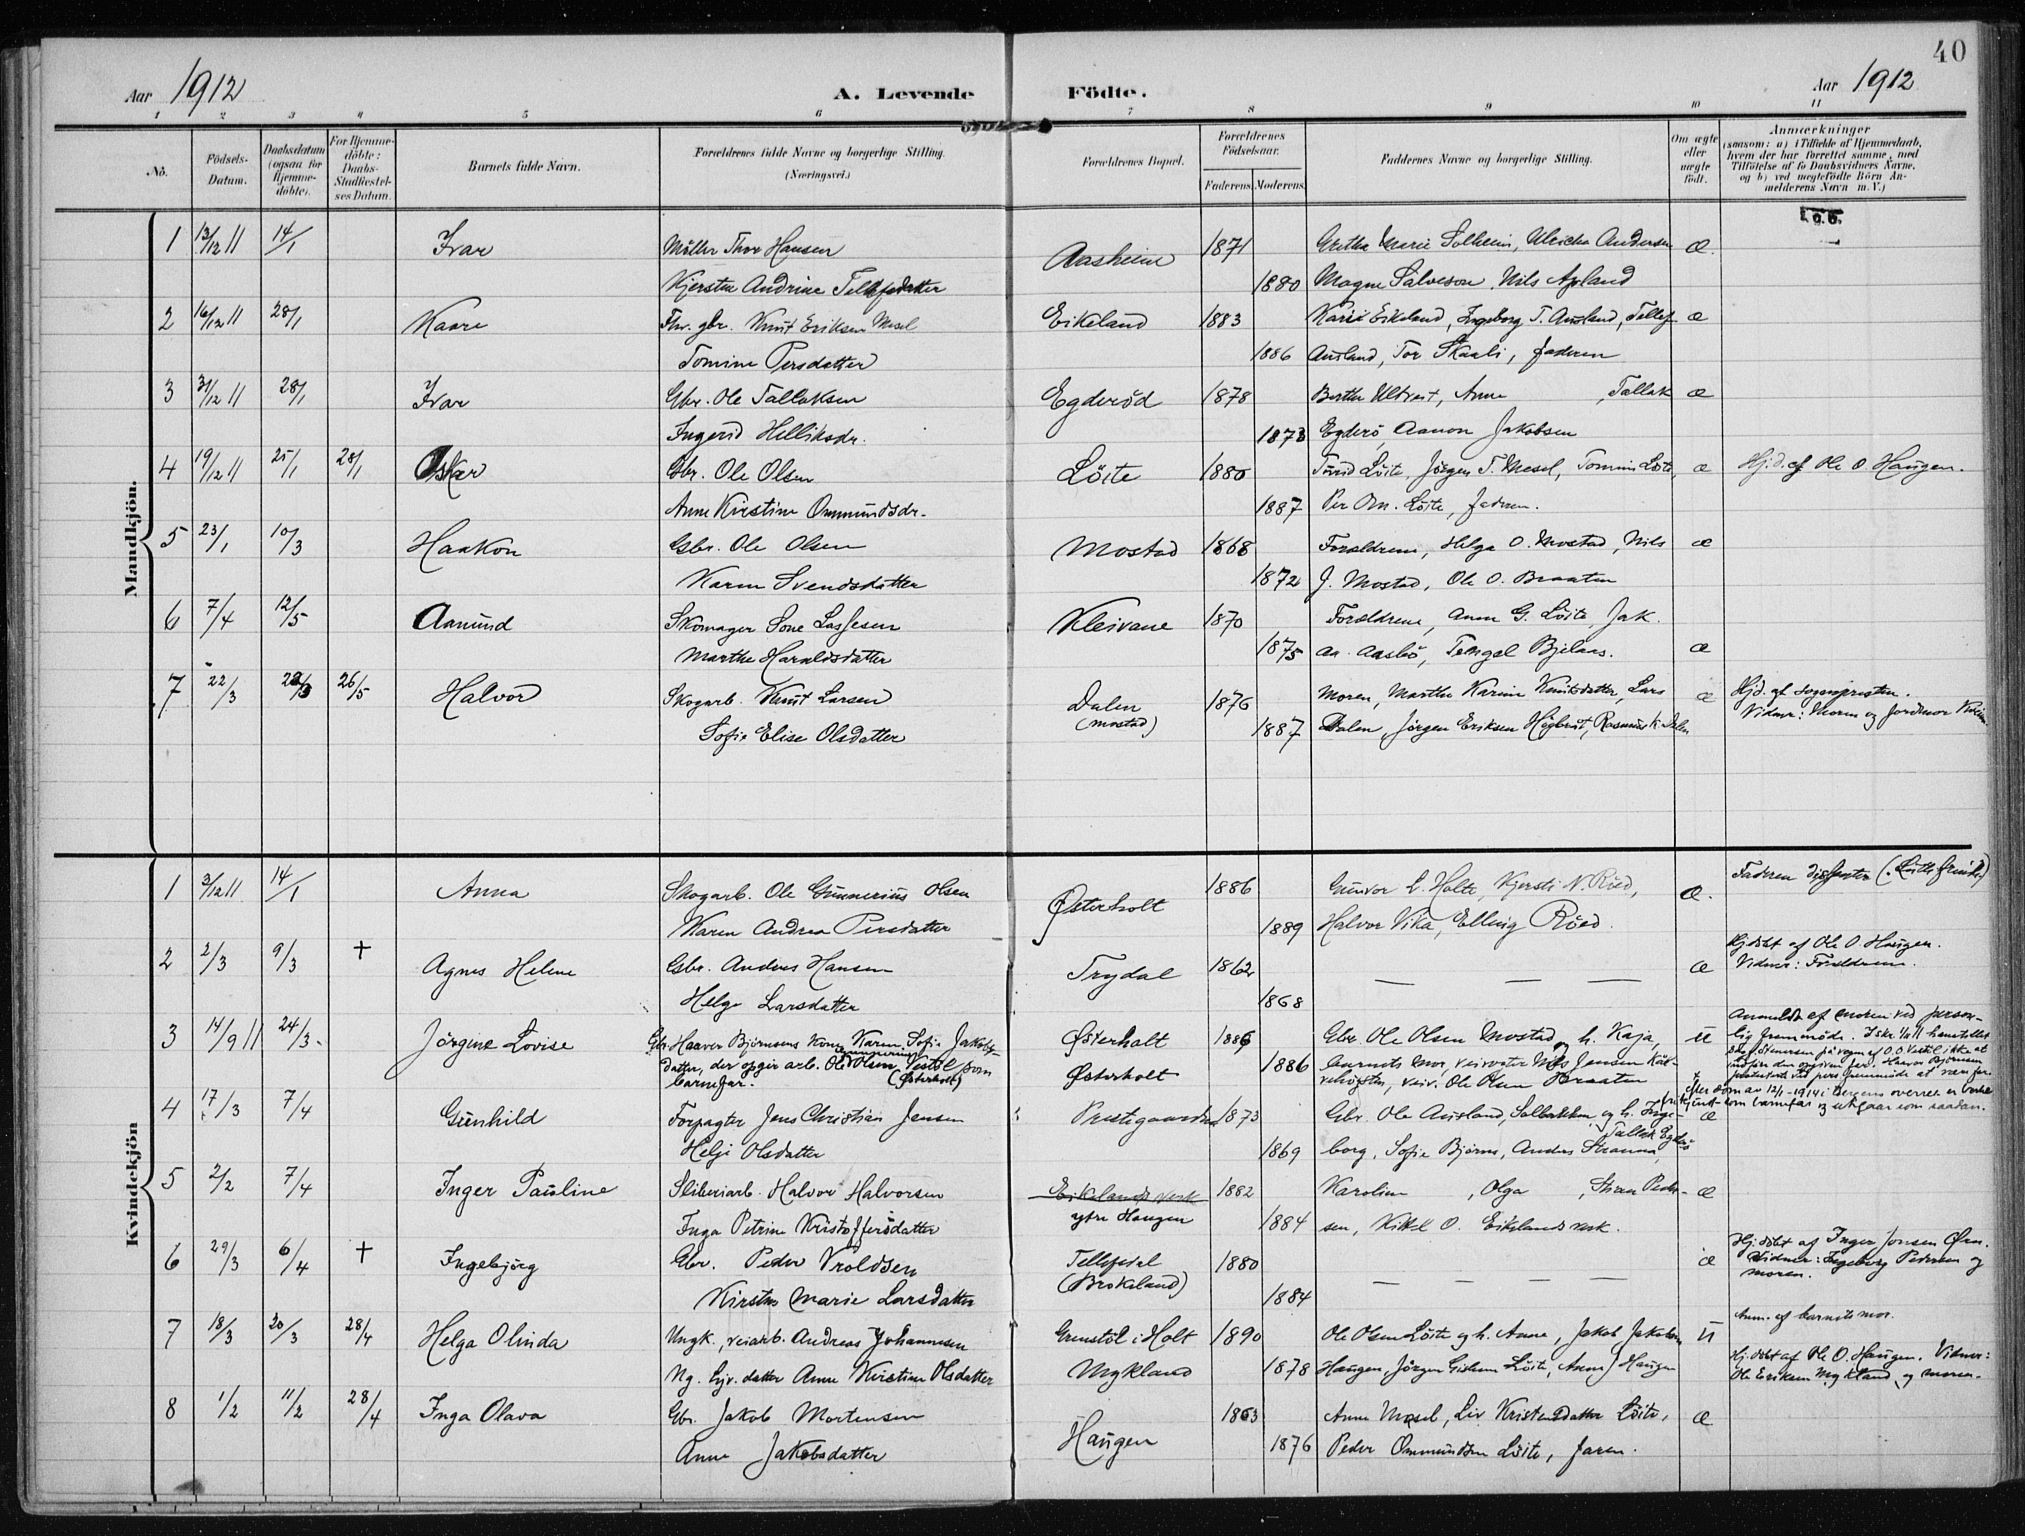 40
Aar 1912
A. Levende Födte.
Aar 1912
1 2 3 4 5 6 7 8 9 10 11
No.
Födsels-Datum.
Daabsdatum (ogsaa for Hjemme-döbte).
For Hjemme-döbte: Daabs-Stadfæstelses Datum.
Barnets fulde Navn.
Forældrenes fulde Navne og borgerlige Stilling. (Næringsvei.)
Forældrenes Bopæl.
Forældrenes Födselsaar.
Faderens. Moderens.
Faddernes Navne og borgerlige Stilling.
Om ægte eller uægte født.
Anmærkninger (saasom: a) i Tilfælde af Hjemmedaab, hvem der har forrettet samme, med Tilföielse af to Daabsvidners Navne, og b) ved uegtefödte Börn Anmelderens Navn m. V.)
Mandkjön.
1 13/12 11 14/1 Ivar Møller Thor Hansen Aasheim 1871 Grethe Marie Solheim, Ulricha Andersen æ.
Kjerstine Andrine Tellefsdatter 1880 Magne Salveson, Nils Apland
2 16/12 11 28/1 Kaare Fhv. gbr. Knut Eriksen Mesel Eikeland 1883 Karen Eikeland, Ingeborg T. Ausland, Tellef æ
Tomine Persdatter 1886 Ausland, Tor Skaali, faderen
3 31/12 11 28/1 Ivar Gbr. Ole Tallaksen Egderöd 1878 Berthe Ultveit, Anne , Tallak æ
Ingerid Helliksdr. 1873 Egderö, Aanon Jakobsen
4 19/12 11 25/1 28/1 Oskar Gbr. Ole Olsen Löite 1880 Turid Löite, Jörgen T. Mesel, Tomine Löite, æ Hj.d. af Ole O. Haugen.
Anne Kirstine Ommundsdr. 1887 Per Om. Löite, faderen.
5 23/1 10/3 Haakon Gbr. Ole Olsen Mostad 1868 Forældrene, Helga O. Mostad, Nils æ
Karen Svendsdatter 1872 J. Mostad, Ole O. Braaten
6 7/4 12/5 Aanund Skomager Sone Lassesen Kleivane 1870 Forældrene, Anne G. Löite, Jak.
Marthe Haraldsdatter 1875 Aa. Aasbö, Tengel Bjelaas. æ
7 22/3 23/3 26/5 Halvor Skogarb. Knut Larsen Dalen 1876 Moren, Marthe Karine Knutsdatter, Lars æ Hjd. af sognepresten.
Sofie Elise Olsdatter (Mostad) 1887 Dalen, Jörgen Eriksen Högbraat, Rasmus K. Dalen Vidner: Moren og jordmor
Kvindekjön
1 3/12 11 14/1 Anna Skogarb. Ole Gunnerius Olsen Østerholt 1886 Gunvor L. Holte, Kjersti N. Röed, æ. Faderen dissenter
Karen Andrea Persdatter 1889 Halvor Vika, Elling Röed.
2 2/3 9/3 † Agnes Helene Gbr. Anders Hansen Trydal 1862 — — — æ Hjdöbt af Ole O. Haugen.
Helge Larsdatter 1868 Vidner: Forældrene.
3 14/9 11 24/3 Jörgine Lovise Gbr. Haaver Björnsens kone Karen Sofie Jakobsdatter, der opgir arb. Ole Olsen Vestöl som barnefar. (Østerholt) Østerholt 1886 Gbr. Ole Olsen Mostad og h. Kaja, u Anmeldt af moren ved personlig fremmöde.
Østerholt 1886 Barnets mor, veivogter Nils Jensen
veiv. Ole Olsen Braaten
efter dom av 12/1-1914 i Bergens overret er
4 17/3 7/4 Gunhild Forpagter Jens Christian Jensen Prestegaarden 1873 Gbr. Ole Ausland, Solbakken, og h. Inge- æ
Helje Olsdatter 1869 borg, Sofie Björns, Anders Strauma, Tallak Egderö
5 2/2 7/4 Inger Pauline Sliberiarb. Halvor Halvorsen Eikelands verk 1882 Karoline , Olga , Stian Peder- æ
Inga Petrine Kristoffersdatter ytre Haugen 1884 sen, Kittil O. Eikelands verk.
6 29/3 6/4 † Ingebjörg Gbr. Peder Vroldsen Tellefsdal 1880 — — — — æ Hj.döbt af Inger Jonsen Örn.
Kirstine Marie Larsdatter (Brokeland) 1884 Vidner: Ingeborg Pedersen og moren.
7 18/3 20/3 28/4 Helga Olinda Ungk., veiarb. Andreas Johannesen Grenstöl i Holt 1890 Ole Olsen Löite og h. Anne, Jakob Jakobsen U Anm. af barnets mor.
Ug. Gjv. datter Anne Kirstine Olsdatter Mykland 1878 Haugen, Jörgen Löite, Anne J Haugen Hj.döbt af Ole O. Haugen. Vidner: Ole Eriksen Mykland og moren.
8 1/2 11/2 28/4 Inga Olava Gbr. Jakob Mortensen Haugen 1863 Anne Mesel, Liv Kristensdatter Löite, æ
Anne Jakobsdatter 1876 Peder Ommundsen Löite, faren.